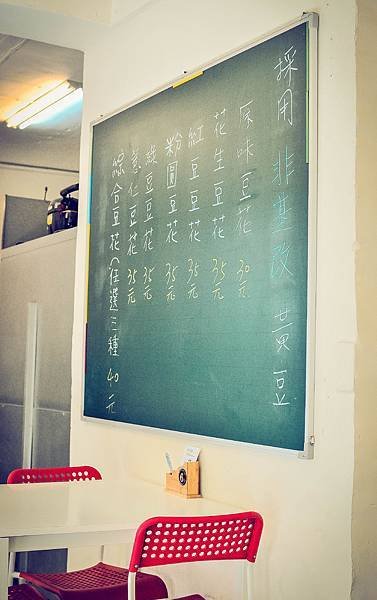 採用 非基改 黃豆
原味豆花 30元
花生豆花 35元
紅豆豆花 35元
粉圓豆花 35元
綠豆豆花 35元
薏仁豆花 35元
綜合豆花(任選三種 40元